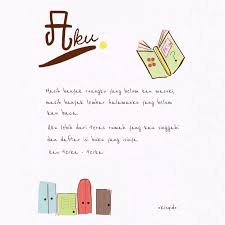 Aku
Masih banyak ruangan yang belum kau masuki,
masih banyak lembar halamanku yang belum
kau baca.
Aku lebih dari teras rumah yang kau singgahi
dan daftar isi buku yang kau
kau terka - terka